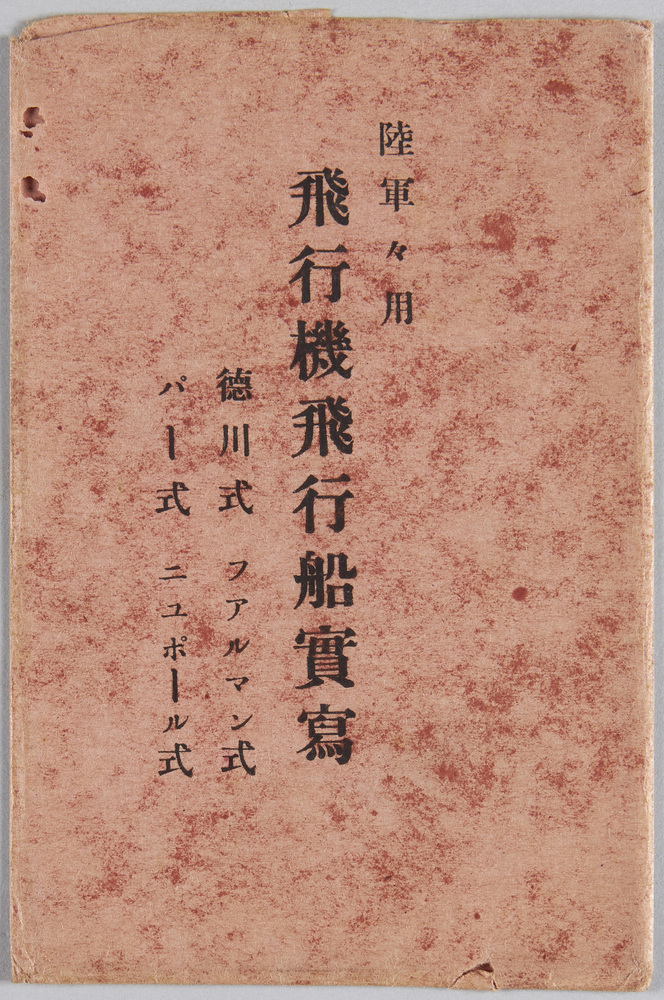 陸軍々用
飛行機飛行船實寫
德川式 フアルマン式
パー式 ニユポール式